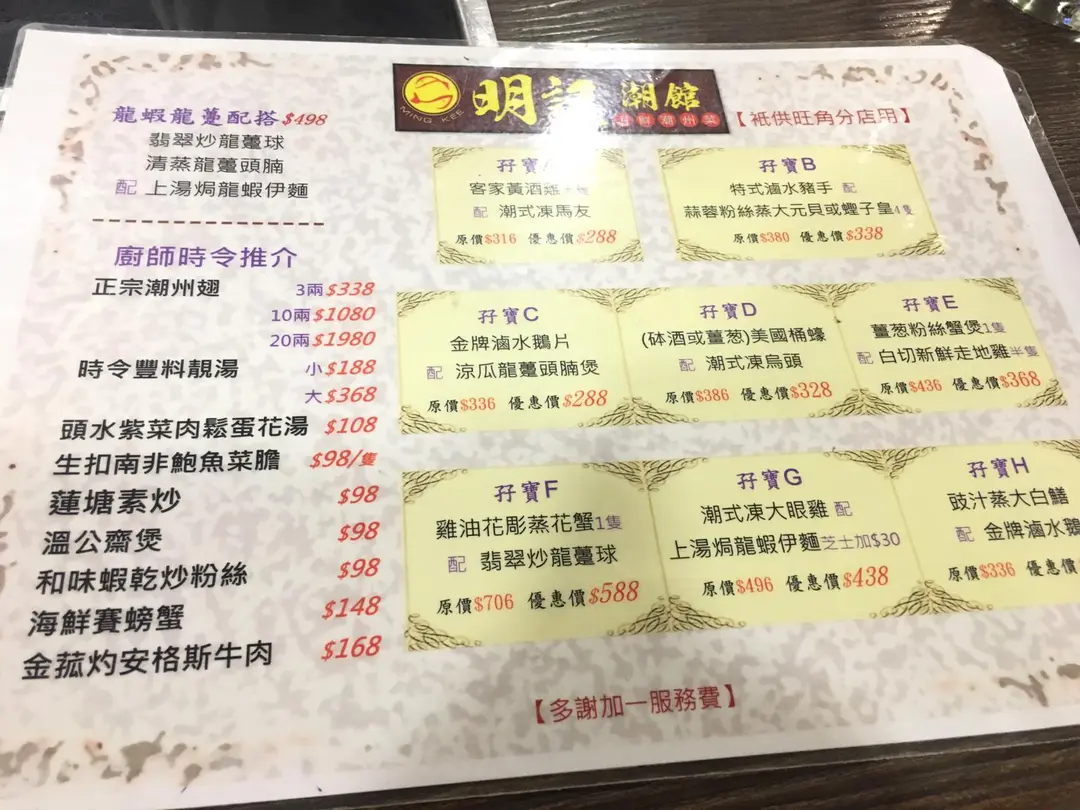 明記潮館
MING KEE
海鮮潮州菜
【祇供旺角分店用】
龍蝦龍躉配搭 $498
翡翠炒龍躉球
清蒸龍躉頭腩
配 上湯焗龍蝦伊麵
廚師時令推介
正宗潮州翅 3兩 $338
10兩 $1080
20兩 $1980
時令豐料靚湯 小 $188
大 $368
頭水紫菜肉鬆蛋花湯 $108
生扣南非鮑魚菜膽 $98/隻
蓮塘素炒 $98
溫公齋煲 $98
和味蝦乾炒粉絲 $98
海鮮賽螃蟹 $148
金菰灼安格斯牛肉 $168
孖寶A
客家黃酒雞
配 潮式凍馬友
原價$316 優惠價$288
孖寶B
特式滷水豬手 配
蒜蓉粉絲蒸大元貝或蟶子皇4隻
原價$380 優惠價$338
孖寶C
金牌滷水鵝片
配 涼瓜龍躉頭腩煲
原價$336 優惠價$288
孖寶D
(砵酒或薑葱)美國桶蠔
配 潮式凍烏頭
原價$386 優惠價$328
孖寶E
薑葱粉絲蟹煲1隻
配 白切新鮮走地雞半隻
原價$436 優惠價$368
孖寶F
雞油花彫蒸花蟹1隻
配 翡翠炒龍躉球
原價$706 優惠價$588
孖寶G
潮式凍大眼雞 配
上湯焗龍蝦伊麵芝士加$30
原價$496 優惠價$438
孖寶H
豉汁蒸大白鱔
配 金牌滷水鵝
原價$336 優惠價
【多謝加一服務費】